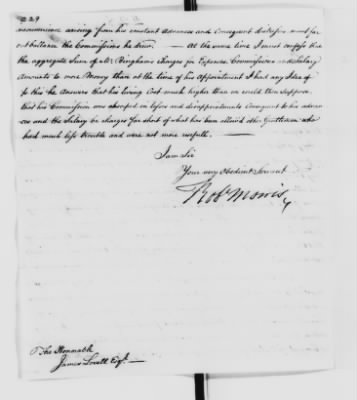 229
inconvenience arising from his constant Advances and Consequent distresses must far
outballance the Commissions he drew. — At the same time I must confess that
the aggregate Sum of Mr Binghams Charges in Expences Commissions and Salary
Amounts to more Money than at the time of his Appointment I had any Idea of
to this he Answers that his living Cost much higher than we could then Suppose
that his Commissions were absorbed in losses and disappointments Consequent to his advan-
ces and the Salary he charges far short of what has been allowed other Gentlemen who
had much less trouble and were not more usefull. —
I am Sir
Your very Obedient Servant
Robt Morris
The Honorable
James Lovell Esqr. —